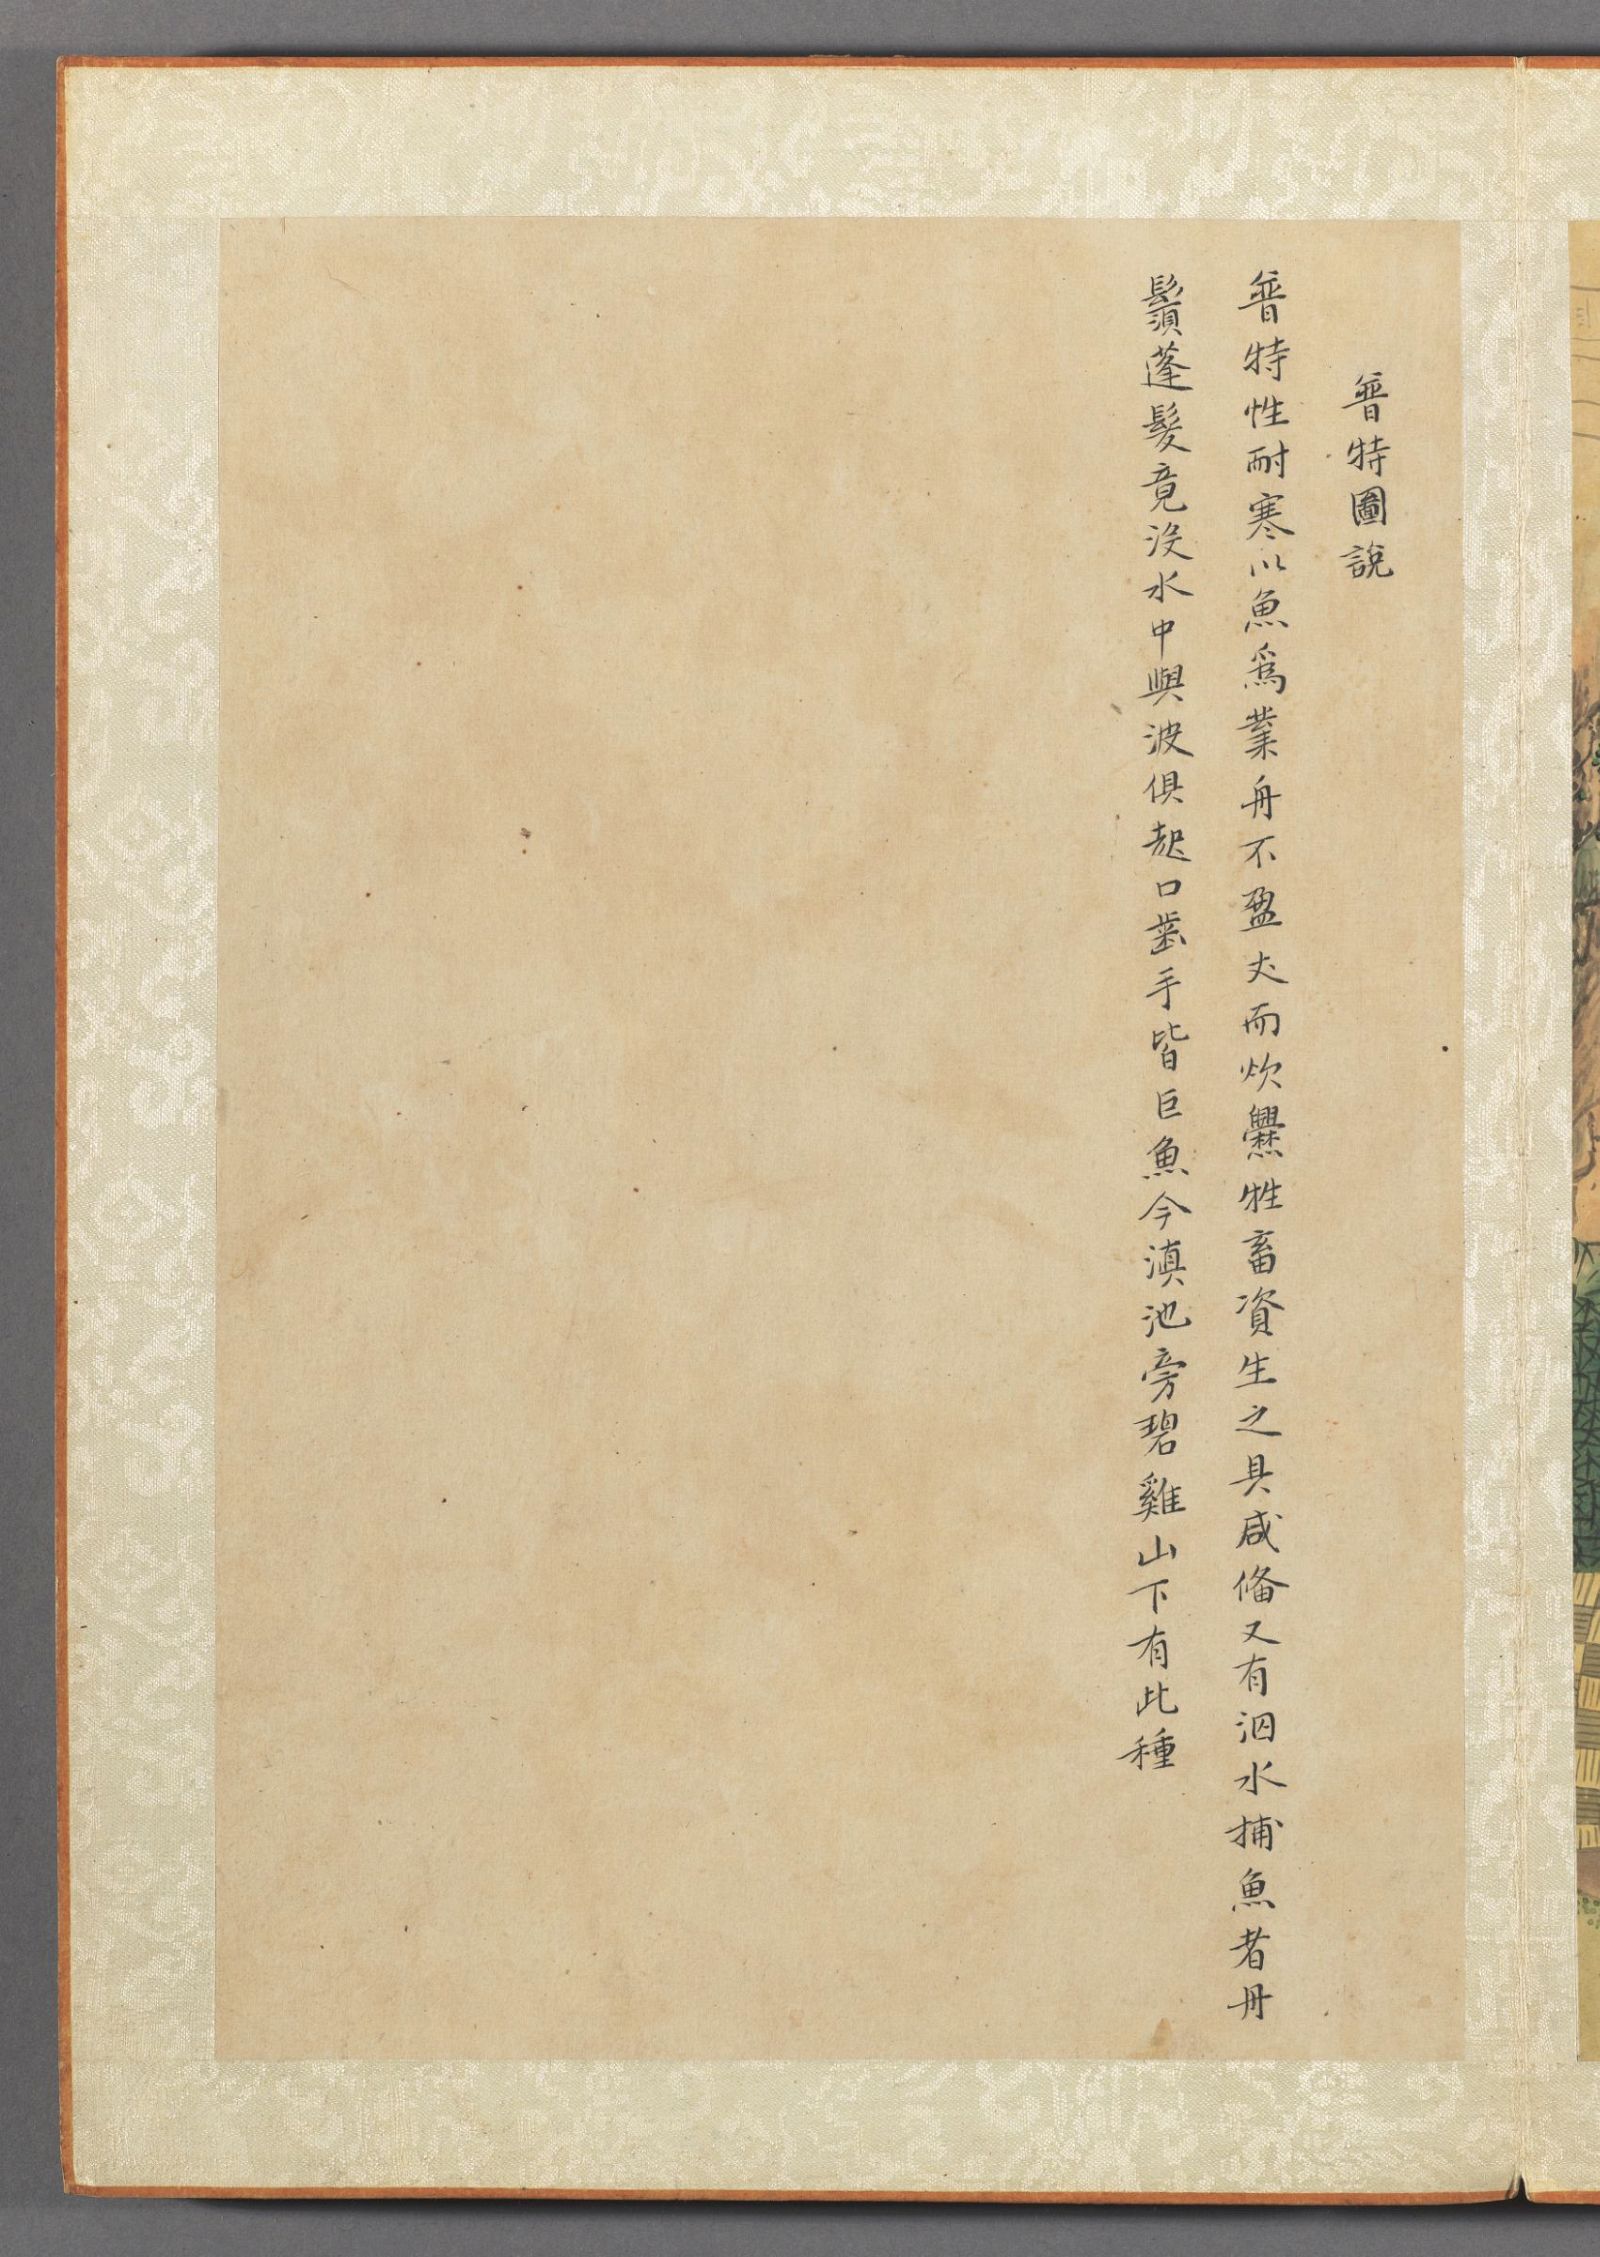 普特圖說
普特性耐寒以魚爲業舟不盈丈而炊爨牲畜資生之具咸俻又有泅水捕魚者丹
鬚蓬髮竟沒水中與波俱起口齒手皆巨魚今滇池旁碧雞山下有此種